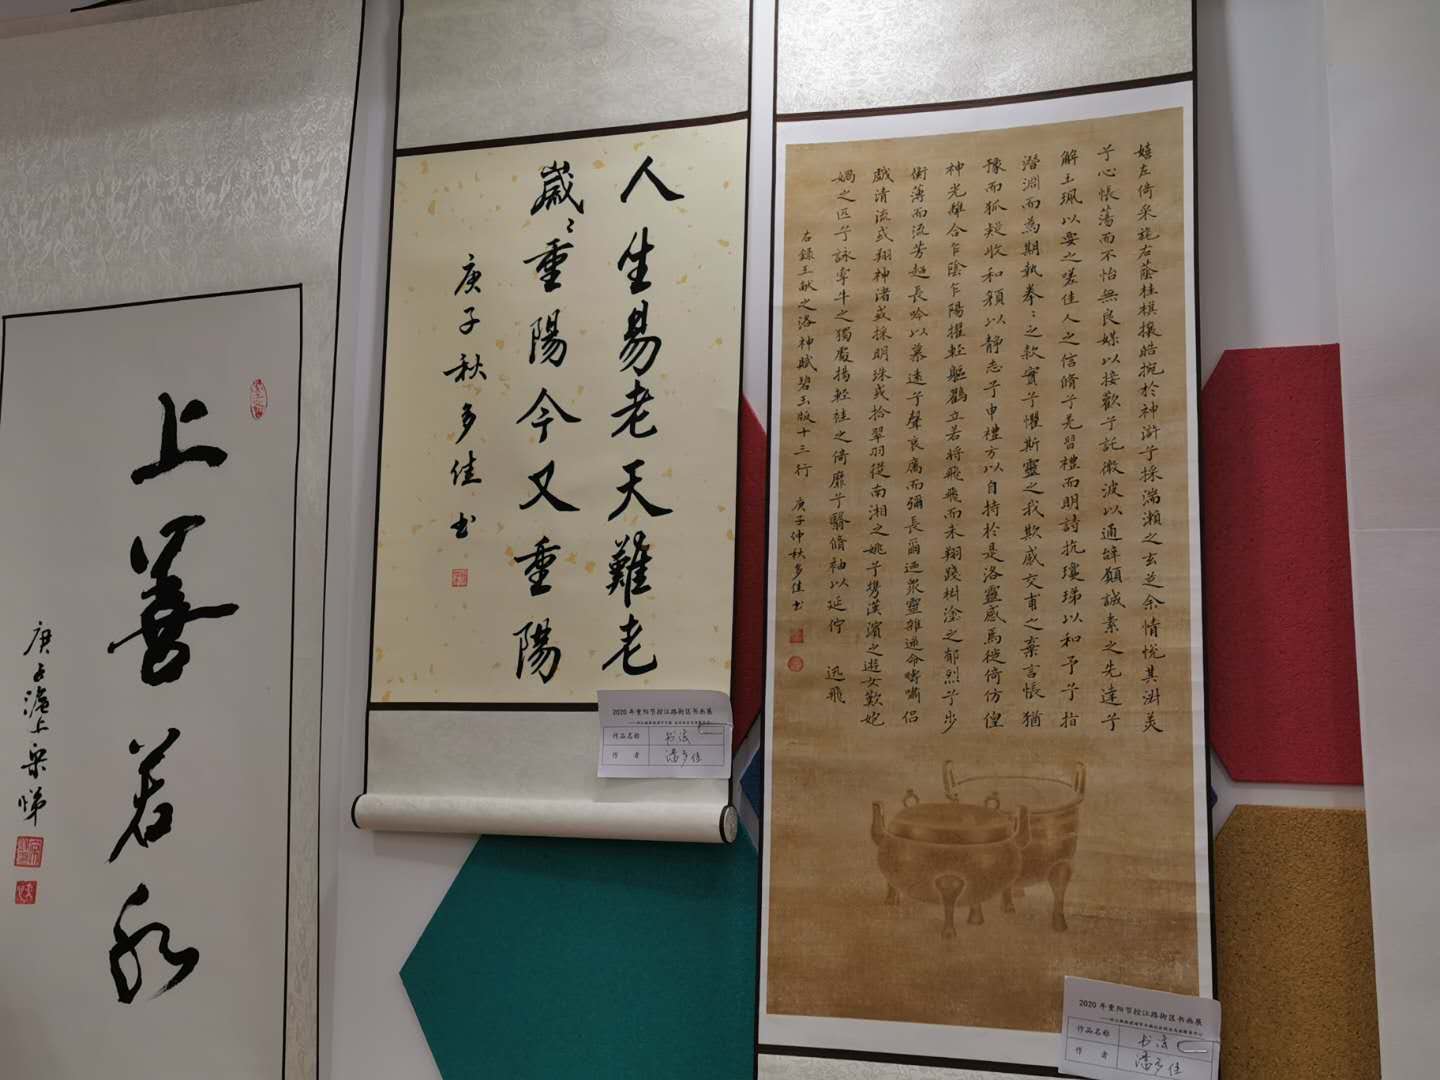 人生易老天難老
歲〻重陽今又重陽
庚子秋多佳书
2020年重阳节控江路街区书画展
作品名称 书法
作者 潘多佳
嬉左倚采旄右蔭桂旗攘皓捥於神滸兮採湍瀨之玄芝余情悅其淑美
兮心悵蕩而不怡無良媒以接歡兮託微波以通辭願誠素之先達兮
解玉珮以要之嗟佳人之信脩兮羌習禮而明詩抗瓊珶以和予兮指
潛淵而為期執拳〻之款實兮懼斯靈之我欺感交甫之棄言悵猶
豫而狐疑收和顏以靜志兮申禮方以自持於是洛靈感焉徙倚仿偟
神光離合乍陰乍陽擢輕軀鶴立若將飛飛而未翔踐椒塗之郁烈兮步
衡薄而流芳超長吟以慕遠兮聲哀厲而彌長爾迺眾靈雜遝命疇嘯侶
戲清流或翔神渚或採明珠或拾翠羽從南湘之姚兮攜漢濱之遊女歎妭
媧之匹兮詠牽牛之獨處揚輕袿之倚靡兮翳脩袖以延佇 迅飛
右錄王獻之洛神賦碧玉版十三行 庚子仲秋多佳书
2020年重阳节控江路街区书画展
作品名称 书法
作者 潘多佳
上善若水
庚子滬上